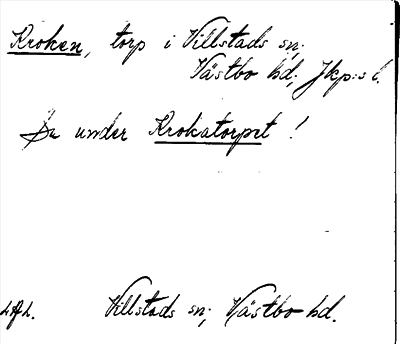 Kroken, torp i Villstads sn;
Västbo hd; Jkp:s l.
Se under Krokatorpet !
Villstads sn; Västbo hd.